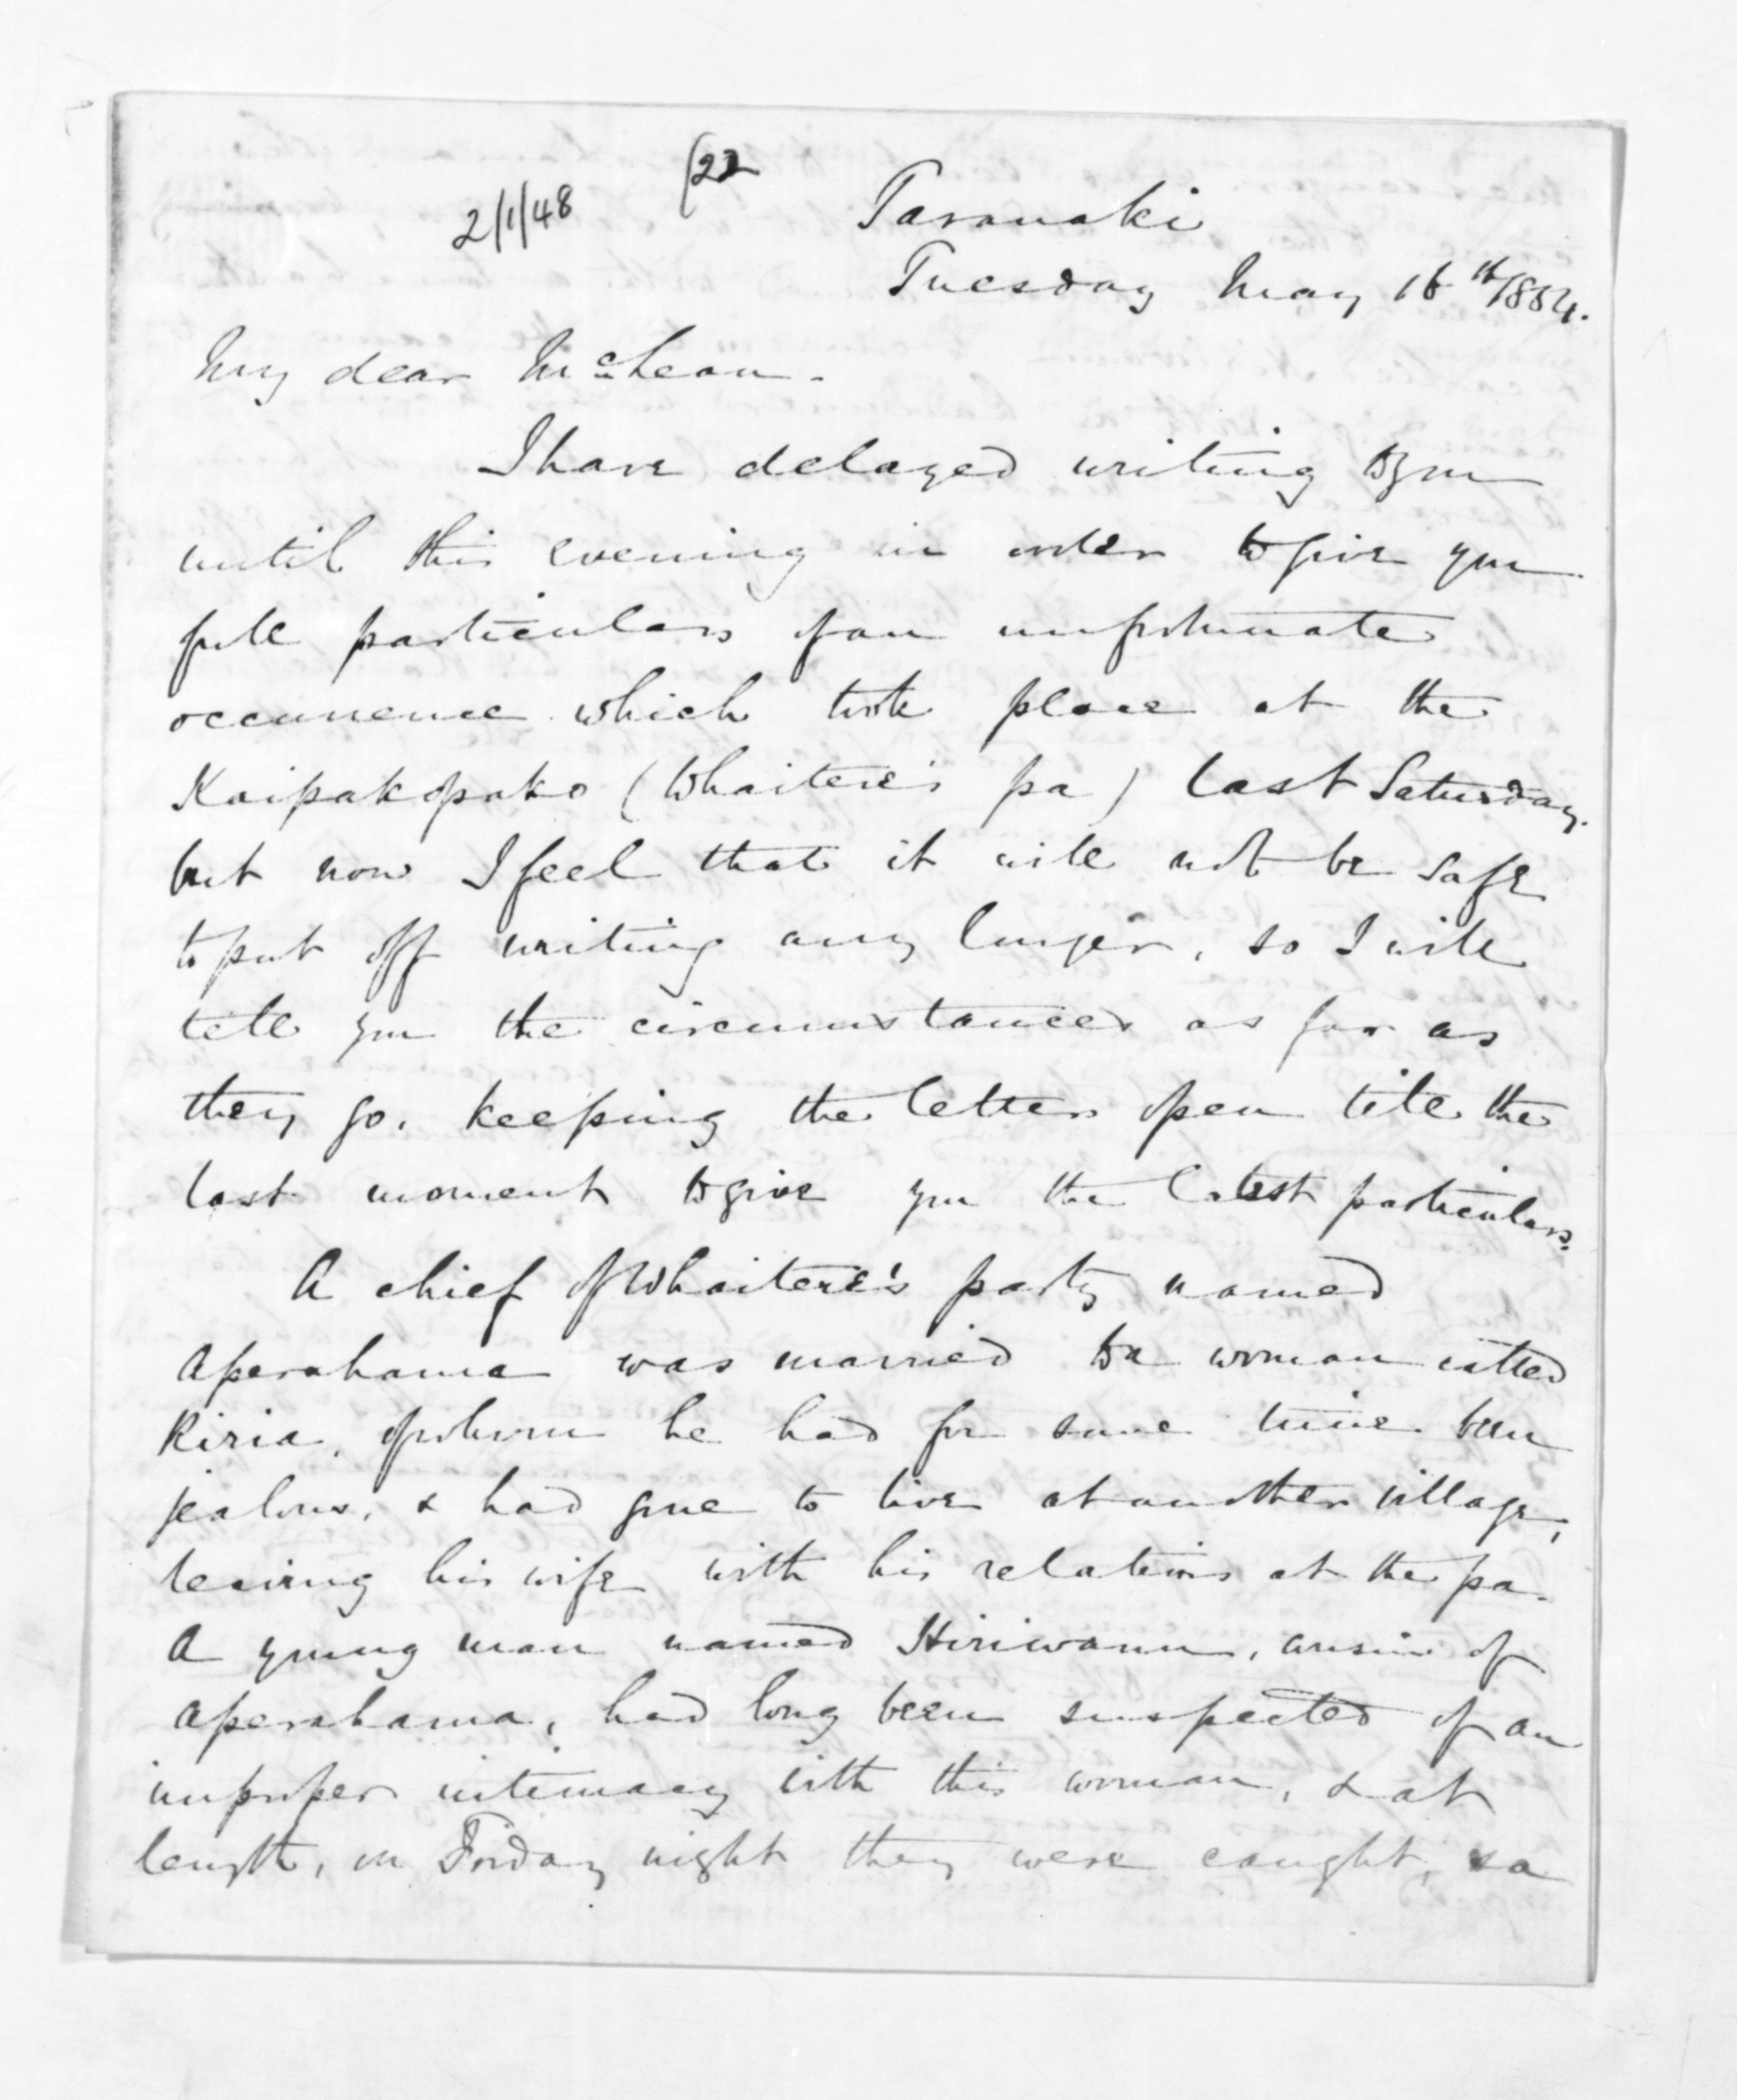 2/1/48
(22
Taranaki
Tuesday May 16th/1854.
My dear McLean.
I have delayed writing to you
until this evening in order to give you
full particulars of an unfortunate
occurrence which took place at the
Kaipakopako (Whaitere's pa) last Saturday.
but now I feel that it will not be safe
to put off writing any longer, so I will
tell you the circumstances as far as
they go, keeping the letter open till the
last moment to give you the latest particulars.
A chief of Whaitere's party named
Aperahama was married to a woman called
Kiria, of whom he had for some time been
jealous, & had gone to live at another village,
leaving his wife with his relations at the pa.
A young man named Hiriwanu, cousin of
Aperahama, had long been suspected of an
improper intimacy with this woman, & at
length, on Friday night they were caught, & a